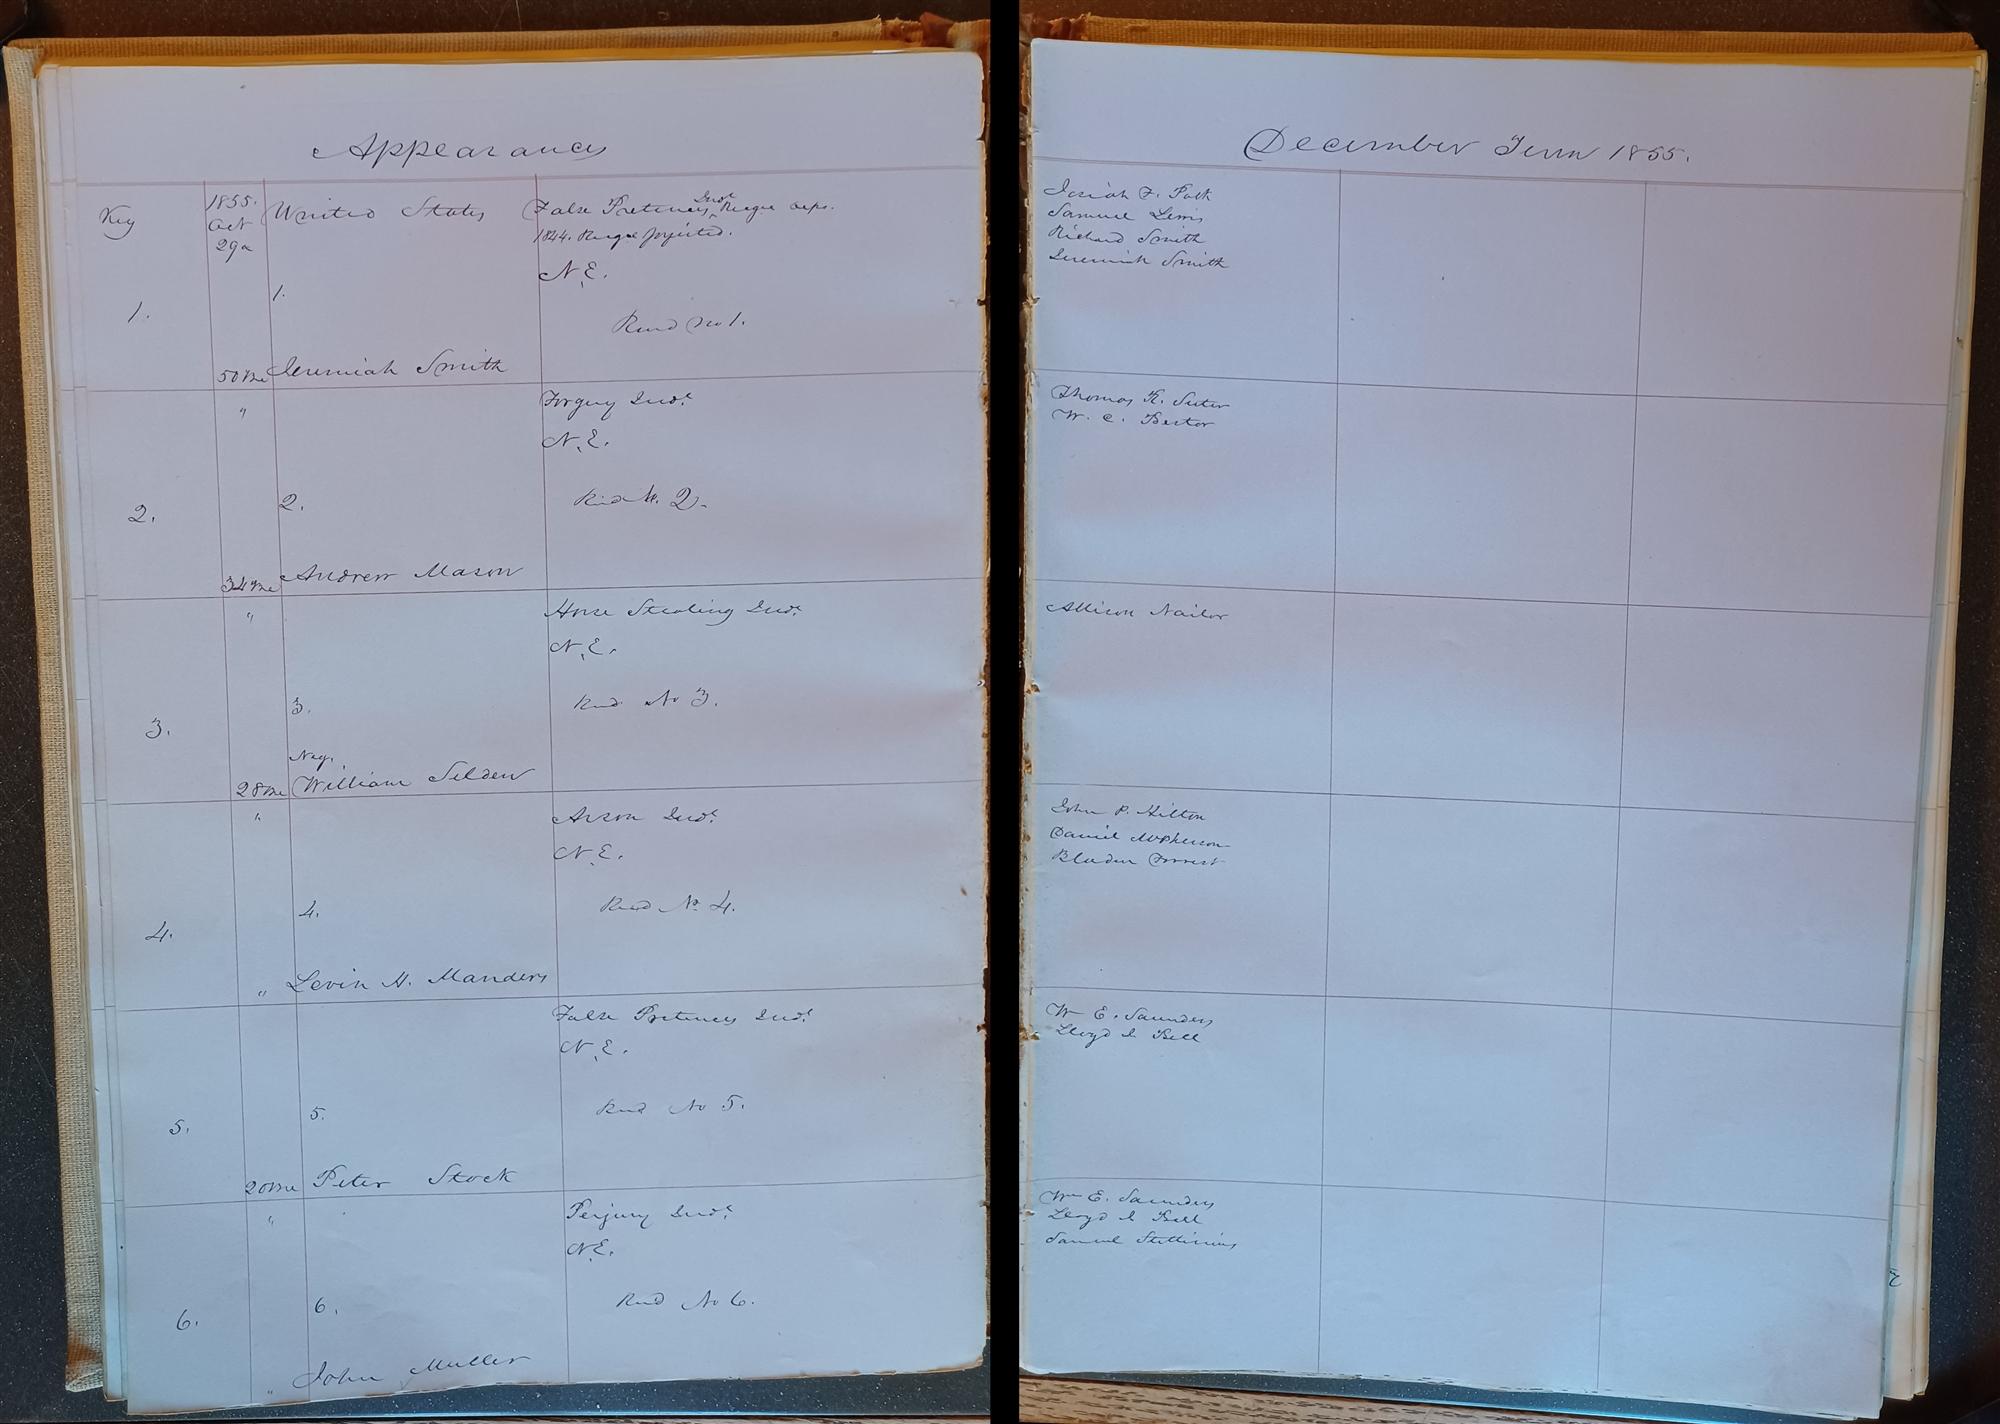 Appearances
Key
1855.
Oct
29
United States
False Pretences Indt
1844.
N.E.
1.
1.
No 1.
Jeremiah Smith
"
Forgery Indt
N.E.
2.
2.
2.
Andrew Mason
"
Horse Stealing Indt
N.E.
3.
3.
No 3.
Neg.
28
William Selden
"
Arson Indt
N.E.
4.
4.
No 4.
"
Levin H. Manders
False Pretences Indt
N.E.
5.
5.
No 5.
Peter Stock
"
Perjury Indt
N.E.
6.
6.
No 6.
"
John Muller
December Term 1855.
Josiah F. Polk
Samuel Lewis
Richard Smith
Jeremiah Smith
Thomas R. Suter
W. C. Bestor
Allison Nailor
John P. Hilton
Daniel McPherson
Bladen Forrest
Wm E. Saunders
Lloyd I Bell
Wm E. Saunders
Lloyd I Bell
Samuel Stettinius